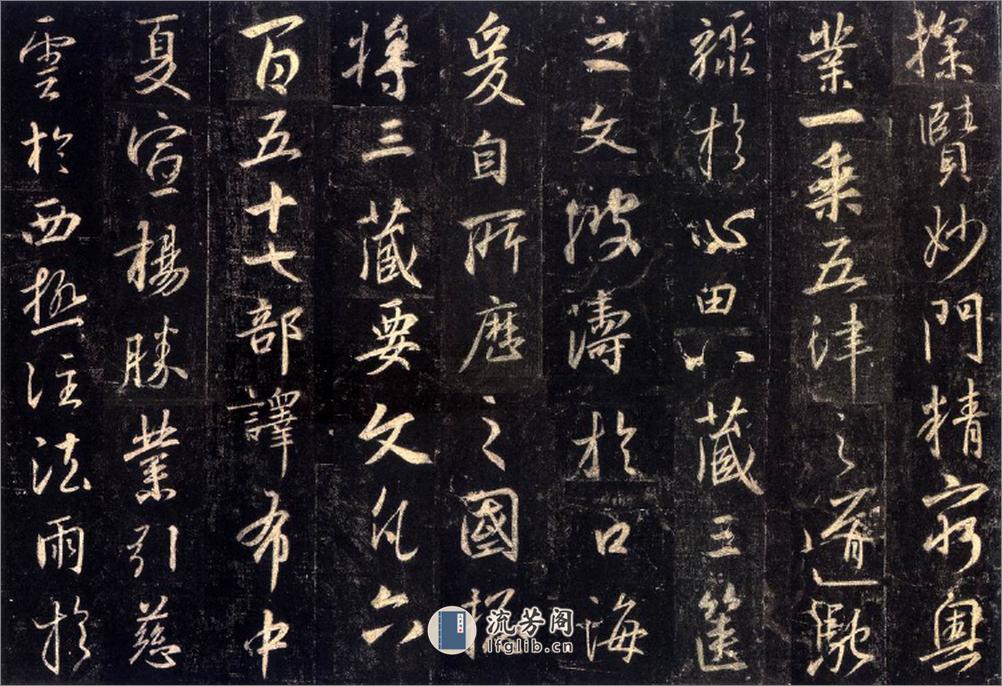 探賾妙門精窮奧
業一乘五津之道馳
驟於心田八藏三篋
之文波濤於口海
爰自所歷之國揔
將三藏要文凡六
百五十七部譯布中
夏宣揚勝業引慈
雲於西極注法雨於
流芳阁
lfglib.cn